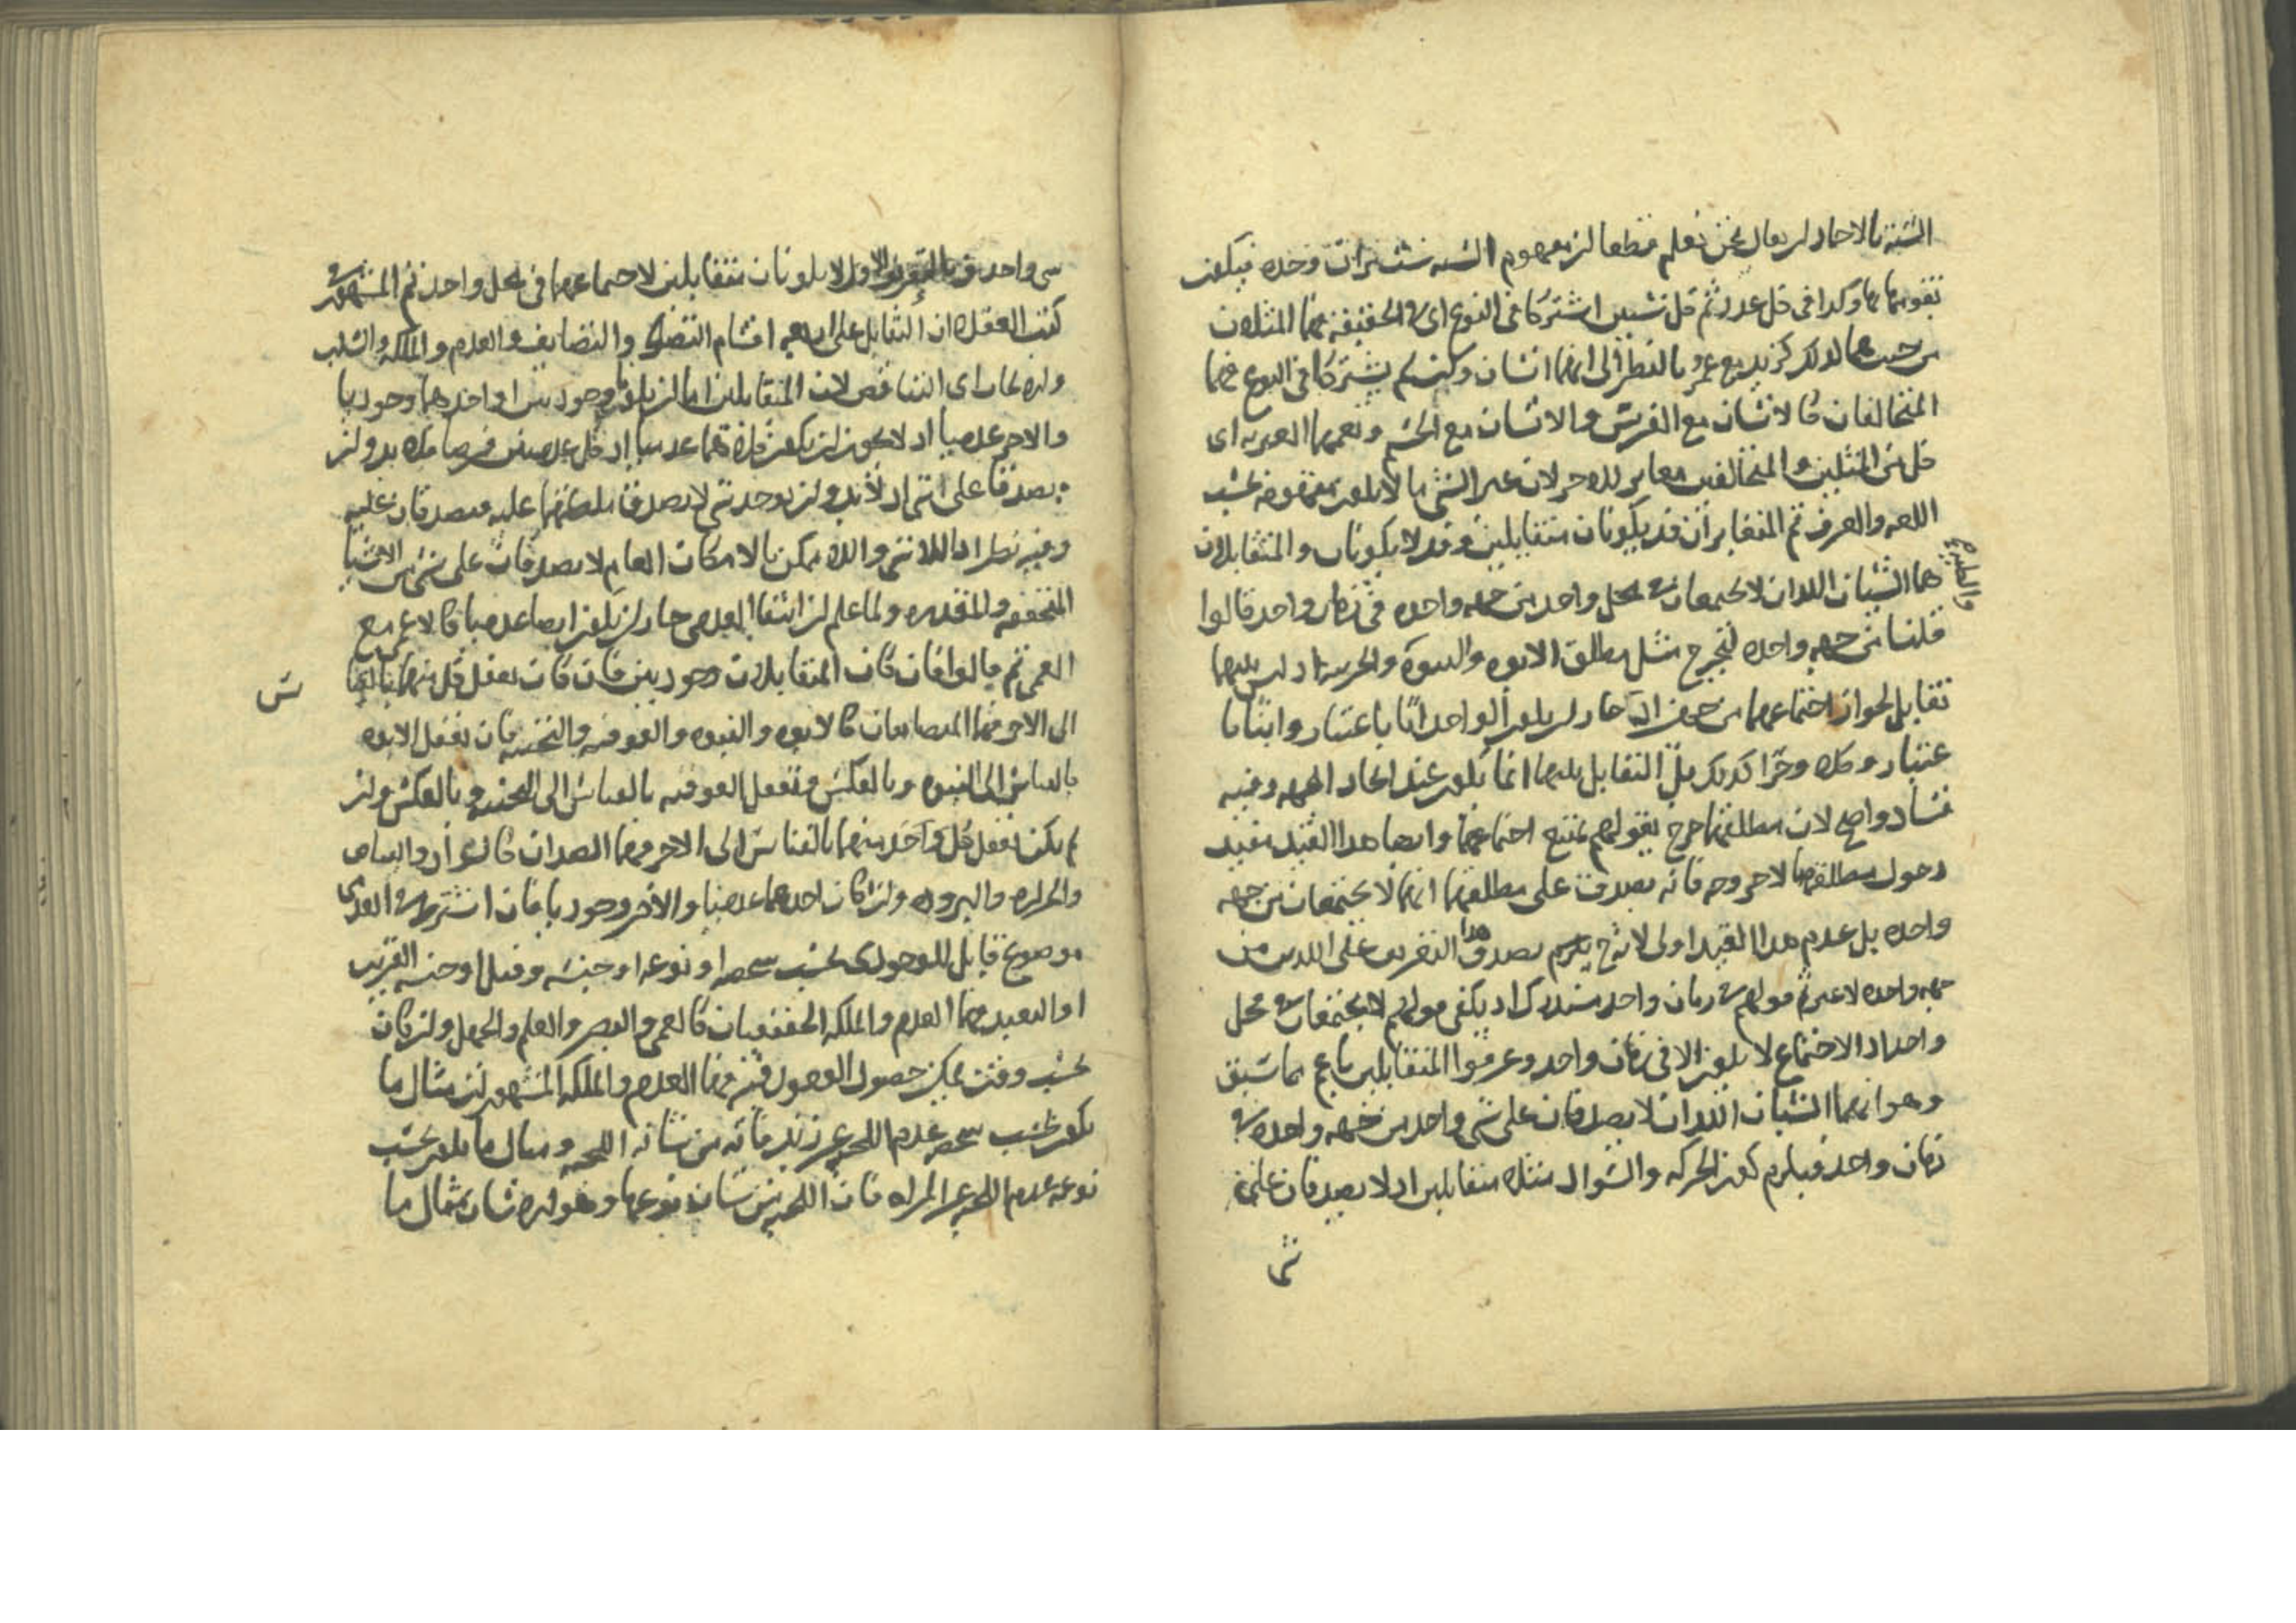 الستة بالاحاد لن يقال نحن نعلم قطعا لن مفهوم الستة ست مرات وحده فيكون
تقومها بها وكذا في كل عدد ثم كل شيين اشتركا في النوع اى في الحقيقة فهما المثلان
من حيث هما كذلك كزيد مع عمرو بالنظر الى انهما انسان وكيف لم يشتركا في النوع فهما
المتخالفان كالانسان مع الفرس والانسان مع الحسم وتعمهما الغيرية اى
كل من المثلين والمتخالفين مغاير للاخر لان غير الشى ما لا يكون مفهومه بحسب
اللغة والعرف ثم المتغايران قد يكونان متقابلين وقد لا يكونان والمتقابلان
هما الشيان اللذان لا يجتمعان في محل واحد من جهة واحده في زمان واحد قالوا
والطبيع
قلنا من جهة واحده ليخرج مثل مطلق الابوه والبنوة والجزيية اذ ليس بينهما
تقابل لجواز اجتماعهما من جهتين اذ جاز لن يكون الواحد ابا باعتبار وابنا با
عتبار وكلا وجزا كذلك بل التقابل بينهما انما يكون عند اتحاد الجهة وفيه
فساد واضح لان مطلقهما خرج بقولهم يمتنع اجتماعهما وايضا هذا القيد يفيد
دخول مطلقهما لا خروجه فانه يصدق على مطلقهما انهما لا يجتمعان من جهة
واحده بل عدم هذا القيد اولى لانه ح يلزم صدق هذا التعريف على اللذين من
جهة واحده لا غير ثم قولهم في زمان واحد مستدرك اذ يكفى قولهم لا يجتمعان في محل
واحد اذ الاجتماع لا يكون الا في زمان واحد وعرفوا المتقابلين باعم مما سبق
وهو انهما الشيان اللذان لا يصدقان على شى واحد من جهة واحده في
زمان واحد فيلزم كون الحركه والسواد مثلا متقابلين اذ لا يصدقان على
شى
شى واحد وبالتعريف الاول لا يكونان متقابلين لاجتماعهما في محل واحد ثم المشهور في
كتب العقلا ان التقابل على اربعة اقسام التضاد والتضايف والعدم والملكه والسلب
والايجاب اى التناقض لان المتقابلين اما لن يكونا وجوديين او احدهما وجوديا
والاخر عدميا اذ لا يجوز لن يكون كلاهما عدميا اذ كل عدميين فرضا فلا بد ولن
يصدقا على شى اذ لا بد ولن يوجد شى لا يصدق ملكتهما عليه فيصدقان عليه
وفيه نظر اذ اللا شى واللا ممكن بالامكان العام لا يصدقان على شى من الاشيا
المحققة والمقدره ولما علم لن انتفا العدمى جاز لن يكون ايضا عدميا كالاعمى مع
العمى ثم قالوا فان كان المتقابلان وجوديين فان كان تعقل كل منهما بالقيا
س
الى الاخر فهما المتضايفان كالابوه والبنوه والفوقيه والتحتيه فان تعقل الابوه
بالقياس الى البنوه وبالعكس وتعقل الفوقيه بالقياس الى التحتيه وبالعكس ولن
لم يكن تعقل كل واحد منهما بالقياس الى الاخر فهما الضدان كالسواد والبياض
والحرارة والبروده ولن كان احدهما عدميا والاخر وجوديا فان اشترط في العدمى
موضوع قابل للوجودى بحسب شخصه او نوعه او جنسه وقيل او جنسه القريب
او البعيد فهما العدم والملكه الحقيقيان كالعمى والبصر والعلم والجهل ولن كان
بحسب وقت يمكن حصول الوجودى فيه فهما العدم والملكه المشهوريان مثال ما
يكون بحسب شخصه عدم اللحيه عن زيد فانه من شانه اللحيه ومثال ما يكون بحسب
نوعه عدم اللحيه عن المراه فان اللحيه من شان نوعها وهو الانسان مثال ما